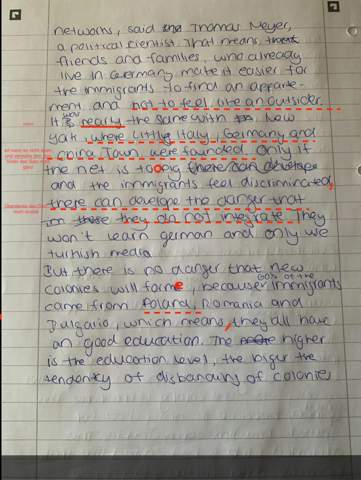 networks, said Thomas Meyer,
a political cientist. That means, that
friends and families, who already
live in Germany make it easier for
the immigrants to find an apparte-
ment and not to feel like an outsider.
It was nearly the same with New
York, where Little Italy, Germany and
China Town were founded. Only if
the net is to ong there can develope
and the immigrants feel discriminated,
there can develope the danger that
they do not integrate. They
won't learn german and only use
turkish media.
But there is no danger that new
colonies will forme, because 60% of the immigrants
came from Poland, Romania and
Bulgaria, which means, they all have
an good education. The higher
is the education level, the bigur the
tendenky of disbanding of colonies